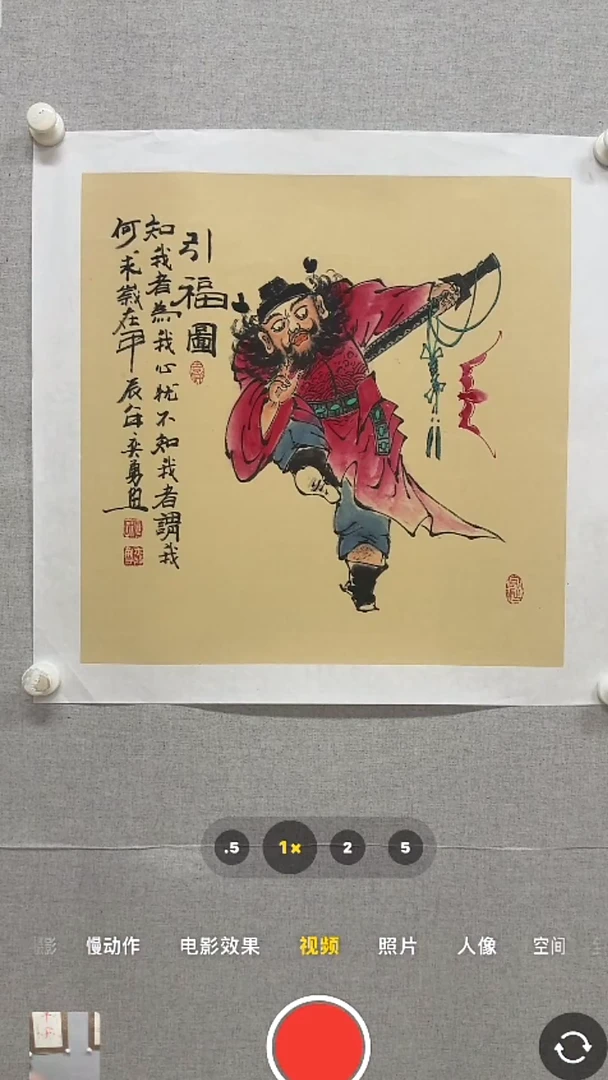 引福圖
知我者為我心忧不知我者謂我
何求歲在甲辰年奕勇
.5 1× 2 5
慢动作 电影效果 视频 照片 人像 空间